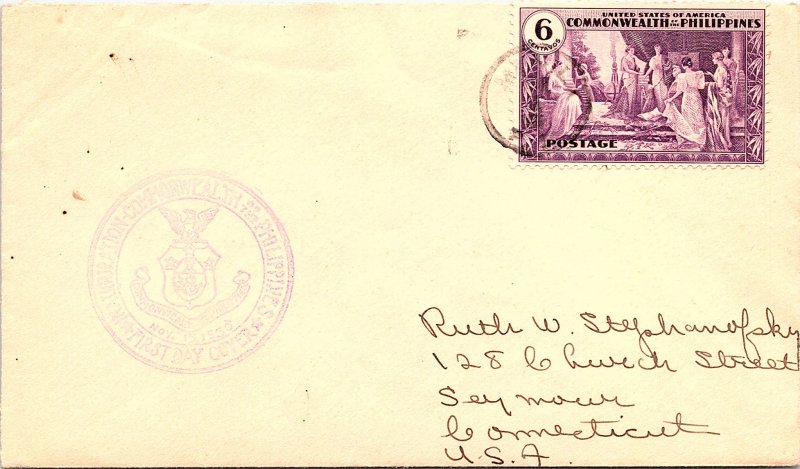 6
CENTAVOS
UNITED STATES OF AMERICA
COMMONWEALTH OF THE PHILIPPINES
POSTAGE
INAUGURATION-COMMONWEALTH OF THE PHILIPPINES
NOV. 15, 1935
FIRST DAY COVER
Ruth W. Stephanofsky
128 Church Street
Seymour
Connecticut
U.S.A.